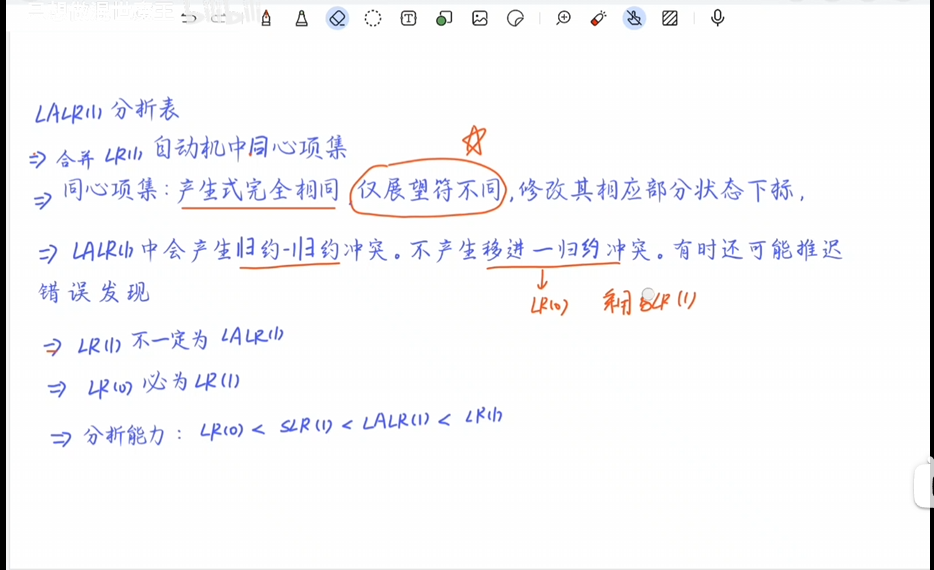 LALR(1)分析表
⇒ 合并 LR(1) 自动机中同心项集
⇒ 同心项集:产生式完全相同 仅展望符不同,修改其相应部分状态下标,
⇒ LALR(1)中会产生归约-归约冲突。不产生移进-归约冲突。有时还可能推迟
错误发现
LR(0) 利用SLR(1)
⇒ LR(1) 不一定为 LALR(1)
⇒ LR(0) 必为 LR(1)
⇒ 分析能力: LR(0) < SLR(1) < LALR(1) < LR(1)